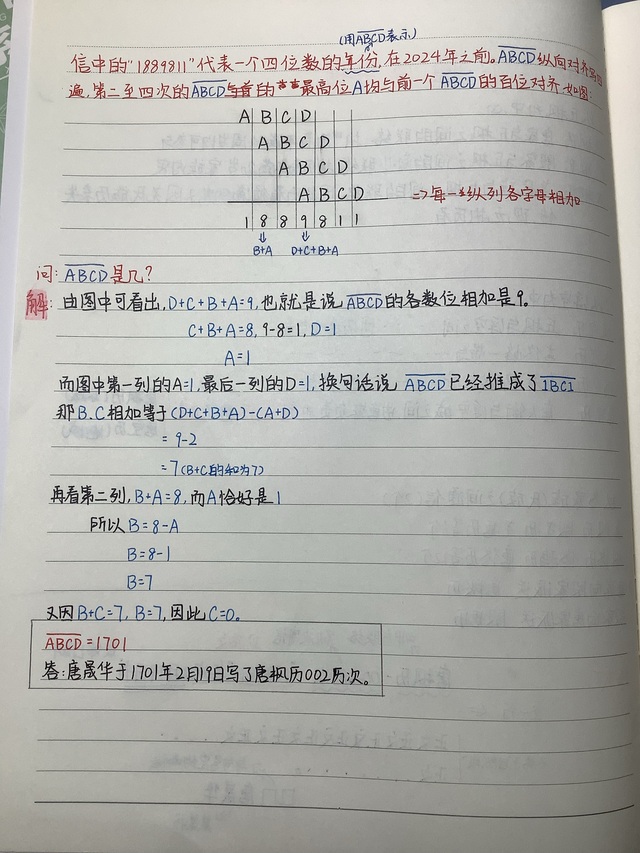 (用ABCD表示)
信中的"1889811"代表一个四位数的年份,在2024年之前。ABCD纵向对齐写四
遍,第二至四次的ABCD与前的最高位A均与前一个ABCD的百位对齐,如图:
A B C D
A B C D
A B C D
A B C D => 每一纵列各字母相加
1 8 8 9 8 1 1
B+A D+C+B+A
问: ABCD是几?
解: 由图中可看出,D+C+B+A=9,也就是说ABCD的各数位相加是9。
C+B+A=8, 9-8=1, D=1
A=1
而图中第一列的A=1,最后一列的D=1,换句话说 ABCD已经推成了1BC1
那B、C相加等于(D+C+B+A)-(A+D)
=9-2
=7(B+C的和为7)
再看第二列,B+A=8,而A恰好是1
所以B=8-A
B=8-1
B=7
又因B+C=7,B=7,因此C=0。
ABCD=1701
答:唐晟华于1701年2月19日写了唐枫历002历次。